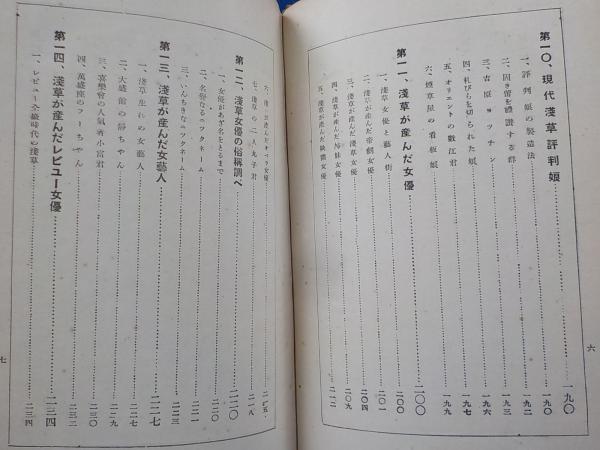 第一〇、現代淺草評判娘……一九〇
一、評判娘の製造法……一九二
二、固き蕾を禮讃する群……一九三
三、吉原ヨツチン……一九六
四、札びらを切られた娘……一九八
五、オリエントの數江君……一九九
六、煙草屋の看板娘……一九九
第一一、淺草が産んだ女優……二〇〇
一、淺草女優と藝人街……二〇〇
二、淺草が産んだ帝劇女優……二〇一
三、淺草が産んだ淺草女優……二〇四
四、淺草が産んだ姉妹女優……二〇九
五、淺草が産んだ映畫女優……二一二
六
六、淺草が産んだオペラ女優……二一五
七、淺草の二人丸子君……二一八
第一二、淺草女優の俗稱調べ……二二〇
一、女優があざ名をとるまで……二二〇
二、名譽なるニツクネーム……二二一
三、いんちきなニツクネーム……二二三
第一三、淺草が産んだ女藝人……二二七
一、淺草生れの女藝人……二二七
二、大盛館の靜ちやん……二二九
三、喜樂會の人氣者小富君……二三〇
四、萬盛座のフーちやん……二三二
第一四、淺草が産んだレビユー女優……二三四
一、レビユー全盛時代の淺草……二三四
七